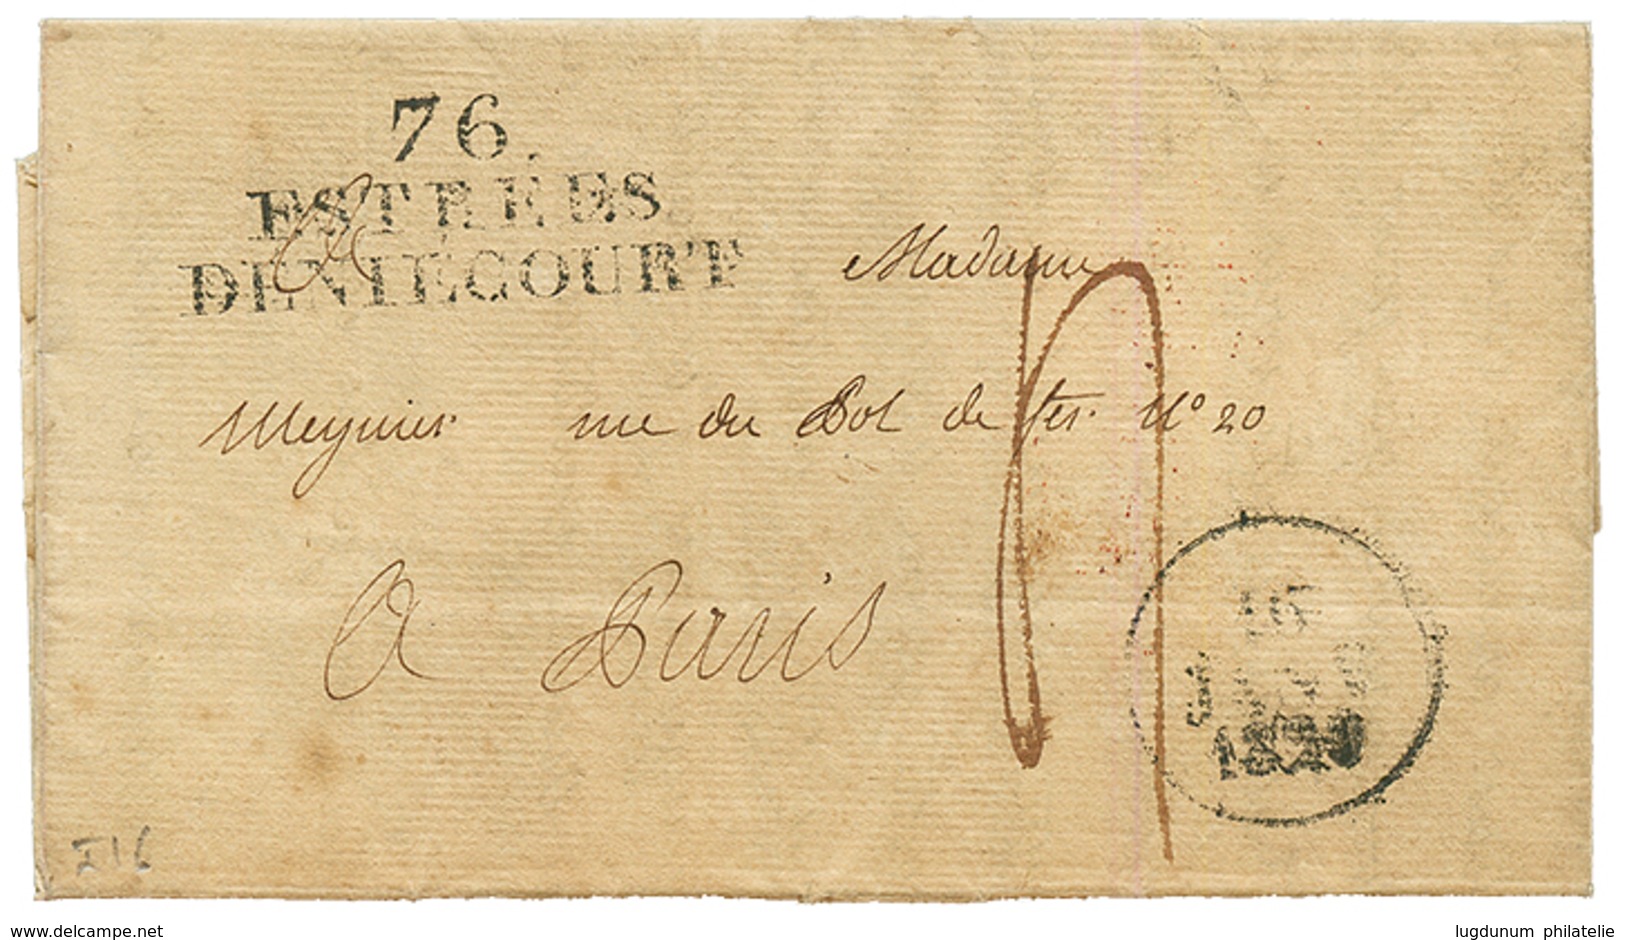 76
ESTRÉES
DENIÉCOURT
A
Madame
Meynier rue du Pot de fer N° 20
A Paris
I16
www.delcampe.net
lugdunum philatelie